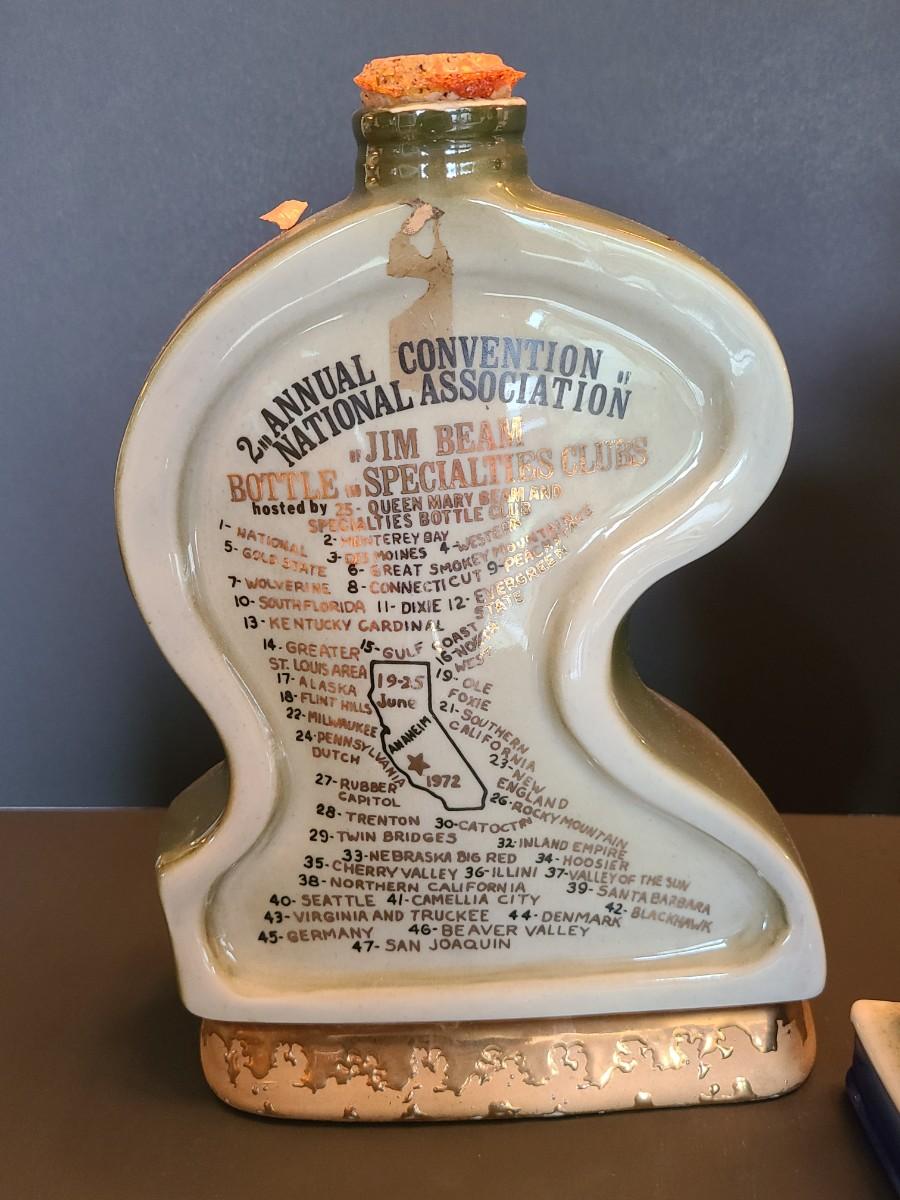 2nd ANNUAL CONVENTION OF
NATIONAL ASSOCIATION
OF JIM BEAM
BOTTLE AND SPECIALTIES CLUBS
hosted by 25- QUEEN MARY BEAM AND
SPECIALTIES BOTTLE CLUB
1- NATIONAL 2- MONTEREY BAY
3- DES MOINES 4- WESTERN
5- GOLD STATE 6- GREAT SMOKEY MOUNTAIN
7- WOLVERINE 8- CONNECTICUT 9- PEACH STATE
10- SOUTH FLORIDA 11- DIXIE 12- EVERGREEN STATE
13- KENTUCKY CARDINAL
14- GREATER ST. LOUIS AREA
15- GULF COAST
16- NORTH WEST
17- ALASKA
18- FLINT HILLS
19- OLE FOXIE
21- SOUTHERN CALIFORNIA
22- MILWAUKEE
23- NEW ENGLAND
24- PENNSYLVANIA DUTCH
19-25
June
ANAHEIM
1972
26- ROCKY MOUNTAIN
27- RUBBER CAPITOL
28- TRENTON 30- CATOCTIN
29- TWIN BRIDGES 32- INLAND EMPIRE
33- NEBRASKA BIG RED 34- HOOSIER
35- CHERRY VALLEY 36- ILLINI 37- VALLEY OF THE SUN
38- NORTHERN CALIFORNIA 39- SANTA BARBARA
40- SEATTLE 41- CAMELLIA CITY 42- BLACKHAWK
43- VIRGINIA AND TRUCKEE 44- DENMARK
45- GERMANY 46- BEAVER VALLEY
47- SAN JOAQUIN